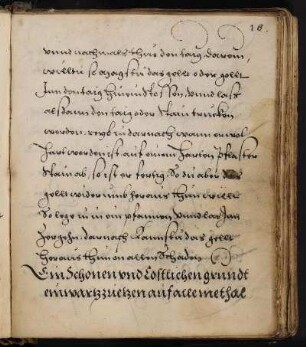 18.
vnnd nach mals thus den taig darein,
willdu so magstu das gollt oder gollt
Inn den taig hinein stossen, vnnd laß
alsdann den taig oder stain trucken
werden, reyb in darnach wann er wol
hart worden ist auf einem harten pflaster
stain ab, so ist er fertig. So du aber
gollt widerumb heraus thun willt
So lege in in ein pfannen vnnd laß In
darnach kanstu das gollt
heraus thun on allen schaden
Ein Schonen vnd kostlichen grundt
ein wartz zuetzen auf alle methal